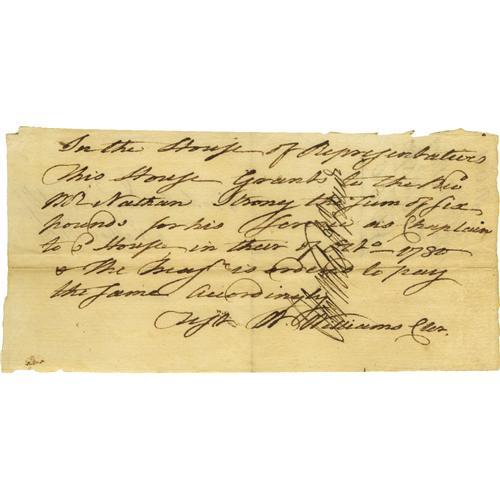 In the House of Representatives
This House Grant to the Rev
Mr Nathan Strong the Sum of Six
pounds for his Service as Chaplain
to ye House in their 1780
& the Treasr is ordered to pay
the Same Accordingly
Test W. Williams Clr.